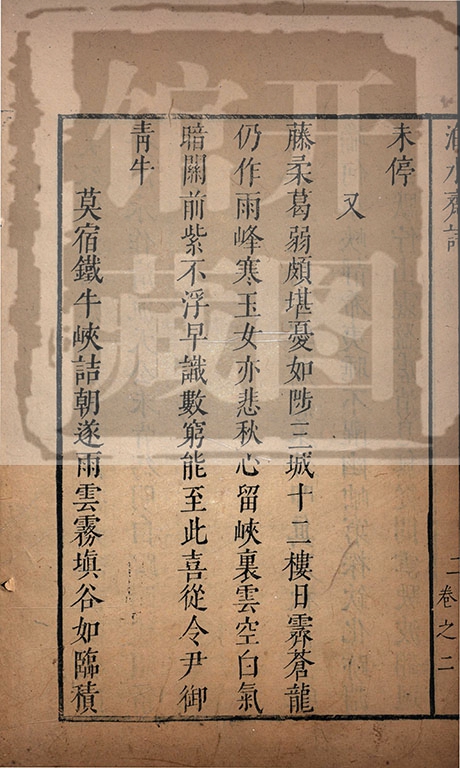 未停
又
藤柔葛弱頗堪憂如陟三城十二樓日霽蒼龍
仍作雨峰寒玉女亦悲秋心留峽裏雲空白氣
暗關前紫不浮早識數窮能至此喜從令尹御
青牛
莫宿鐵牛峽詰朝遂雨雲霧塡谷如臨積
二
卷之二
开图
馆藏